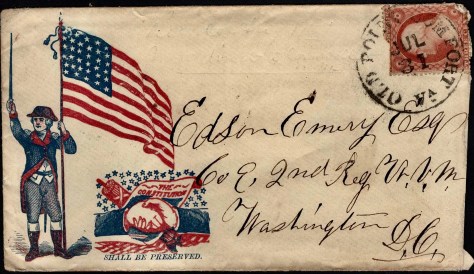 OLD POINT COMFORT VA
JUL
31
Edson Emery Esq
Co E, 2nd Reg V.V.M.
Washington
D.C.
THE
CONSTITUTION
SHALL BE PRESERVED.